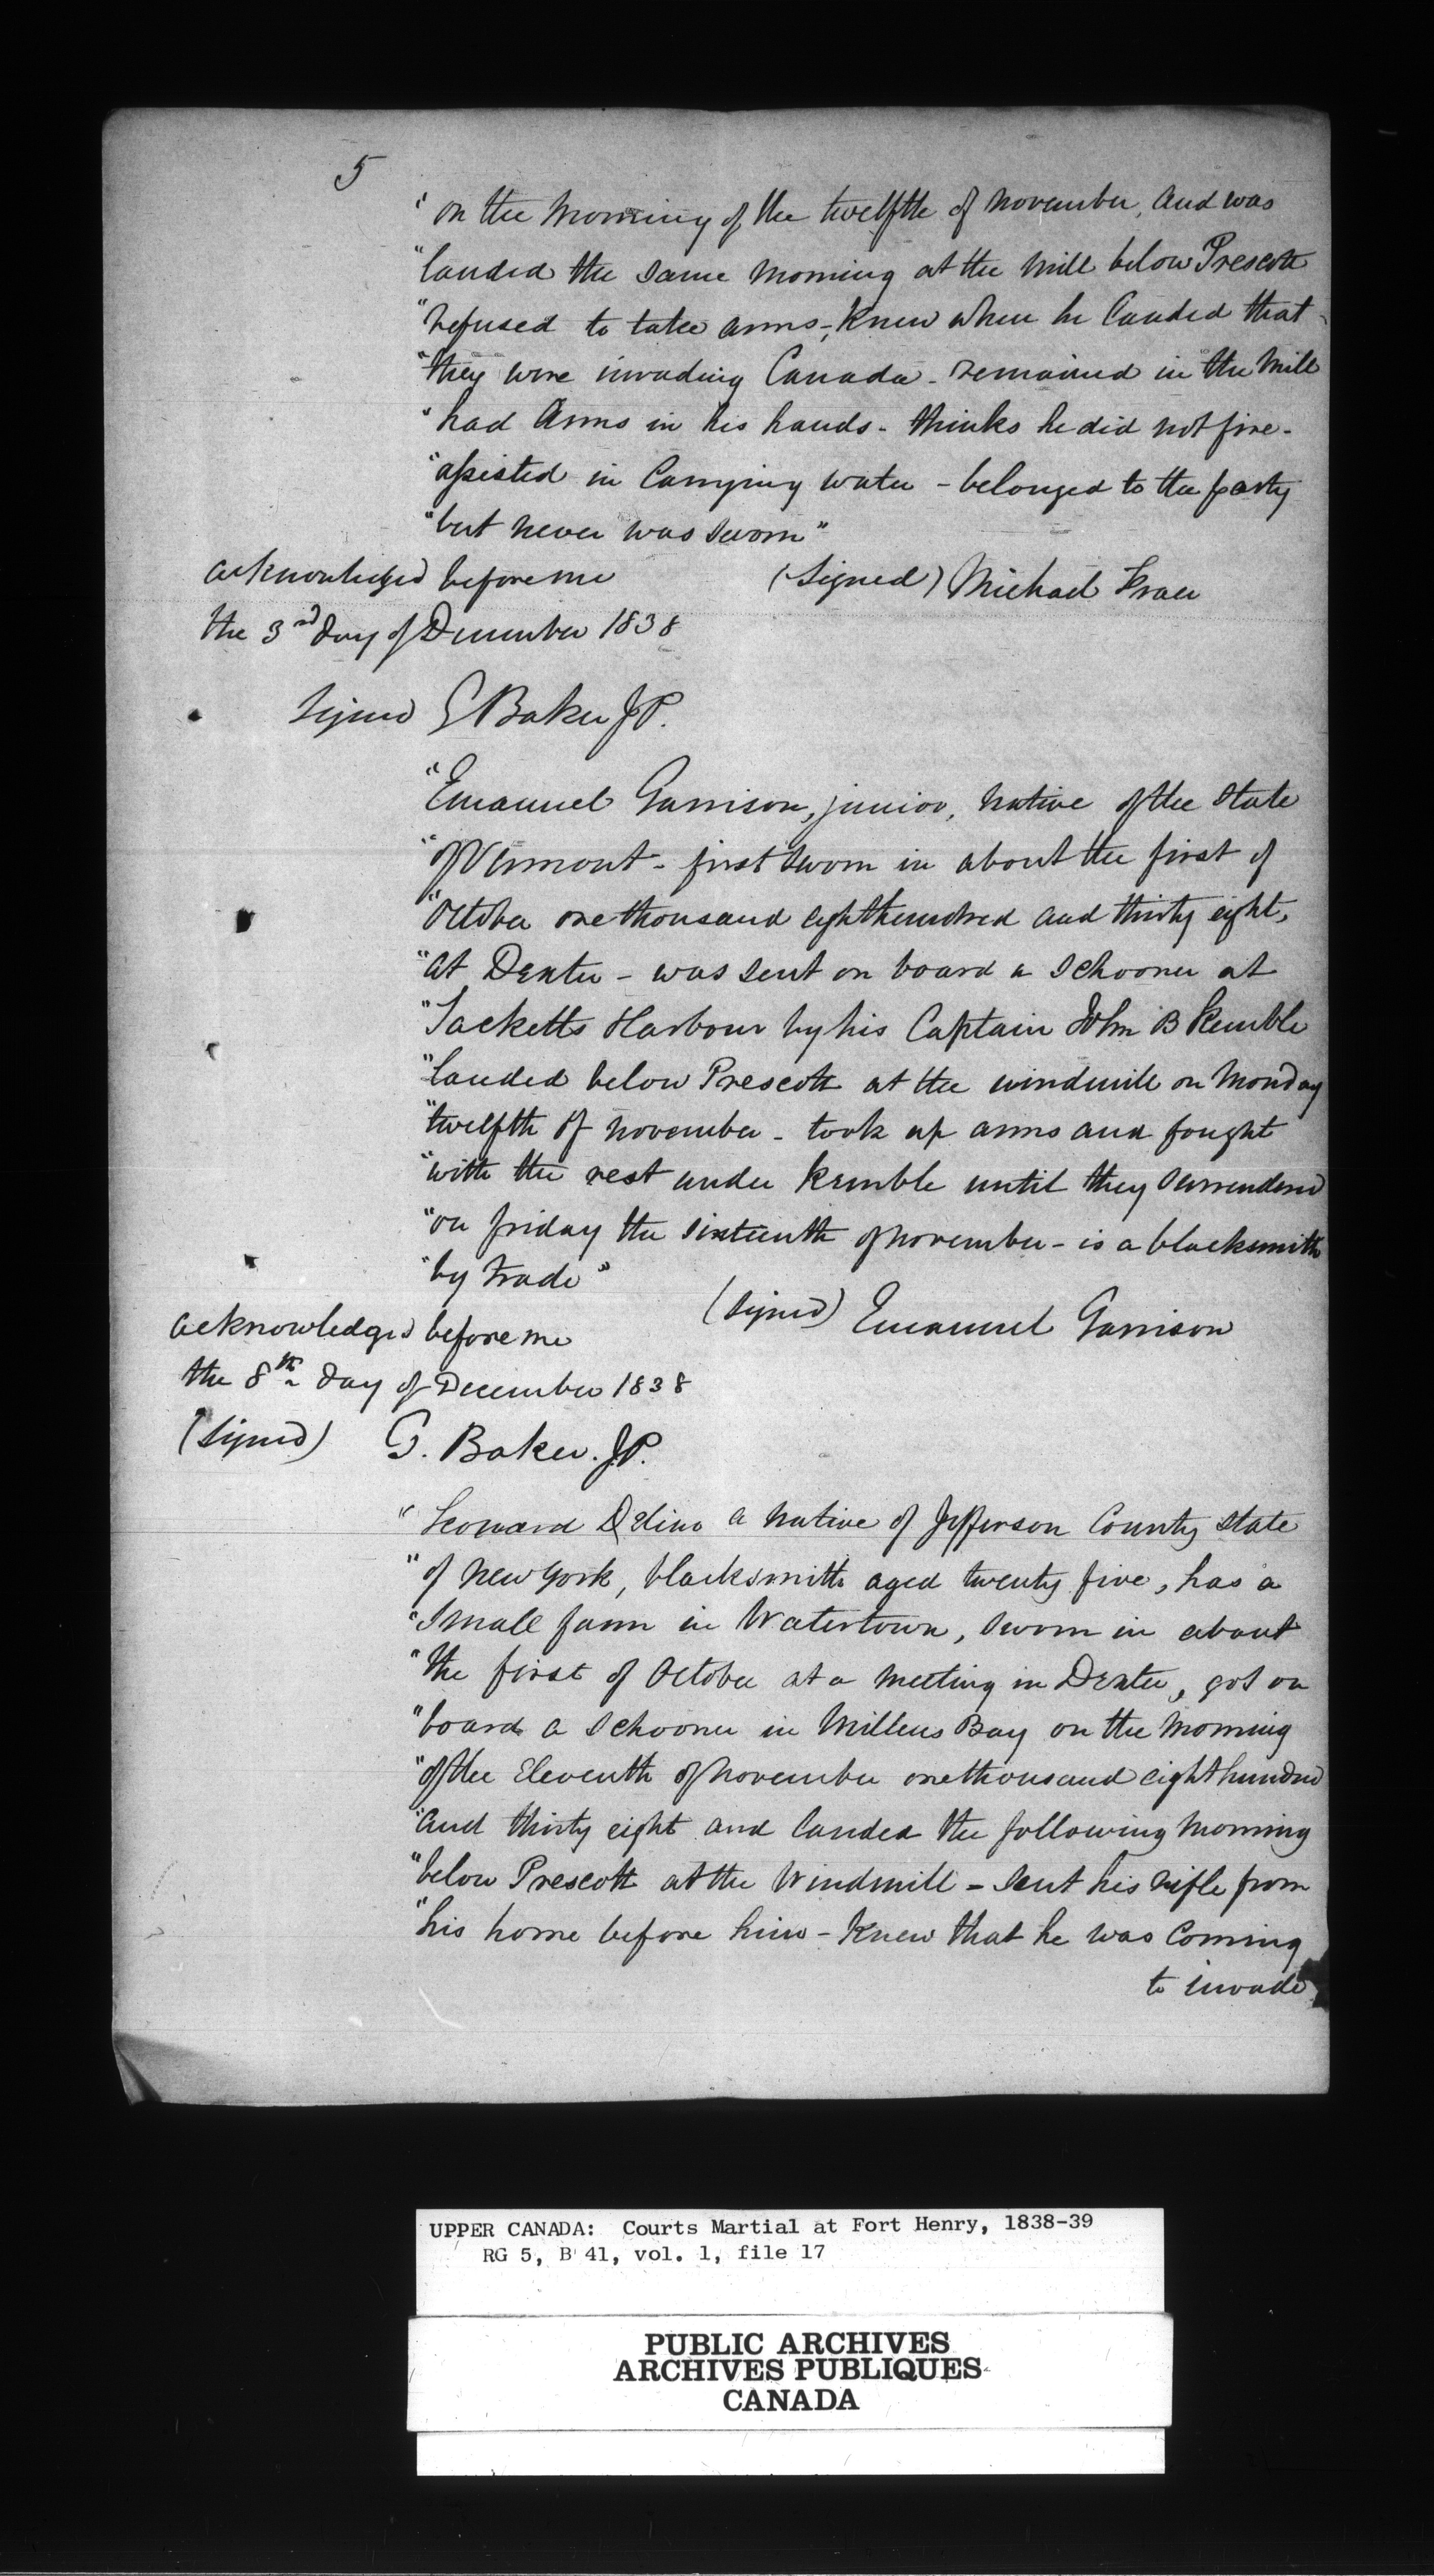 5
" on the morning of the twelfth of november, and was
"landed the same morning at the mill below Prescott
"refused to take arms, - Knew when he landed that
"they were invading Canada - remained in the mill
"had Arms in his hands - thinks he did not fire -
"assisted in Carrying water - belonged to the party
"but never was sworn"
acknowledged before me
(signed) Michael Fraer
the 3rd day of December 1838
signed G Baker JP.
"Emanuel Garrison, junior, native of the state
"of Vermont - first sworn in about the first of
"October one thousand eight hundred and thirty eight,
"at Dexter - was sent on board a schooner at
"Sacketts Harbour by his Captain John B Kemble
"landed below Prescott at the windmill on Monday
"twelfth of november - took up arms and fought
"with the rest under Kemble until they surrendered
"on friday the sixteenth of november - is a blacksmith
"by trade"
(signed) Emanuel Garrison
acknowledged before me
the 8th day of December 1838
(signed) G. Baker. J.P.
" Leonard Delino a native of Jefferson County state
"of New York, blacksmith aged twenty five, has a
"small farm in Watertown, sworn in about
"the first of October at a meeting in Dexter, got on
"board a schooner in Millens Bay on the morning
"of the Eleventh of november one thousand eight hundred
"and thirty eight and landed the following morning
"below Prescott at the Windmill - sent his rifle from
"his home before him - Knew that he was coming
to invade
UPPER CANADA: Courts Martial at Fort Henry, 1838-39
RG 5, B 41, vol. 1, file 17
PUBLIC ARCHIVES
ARCHIVES PUBLIQUES
CANADA